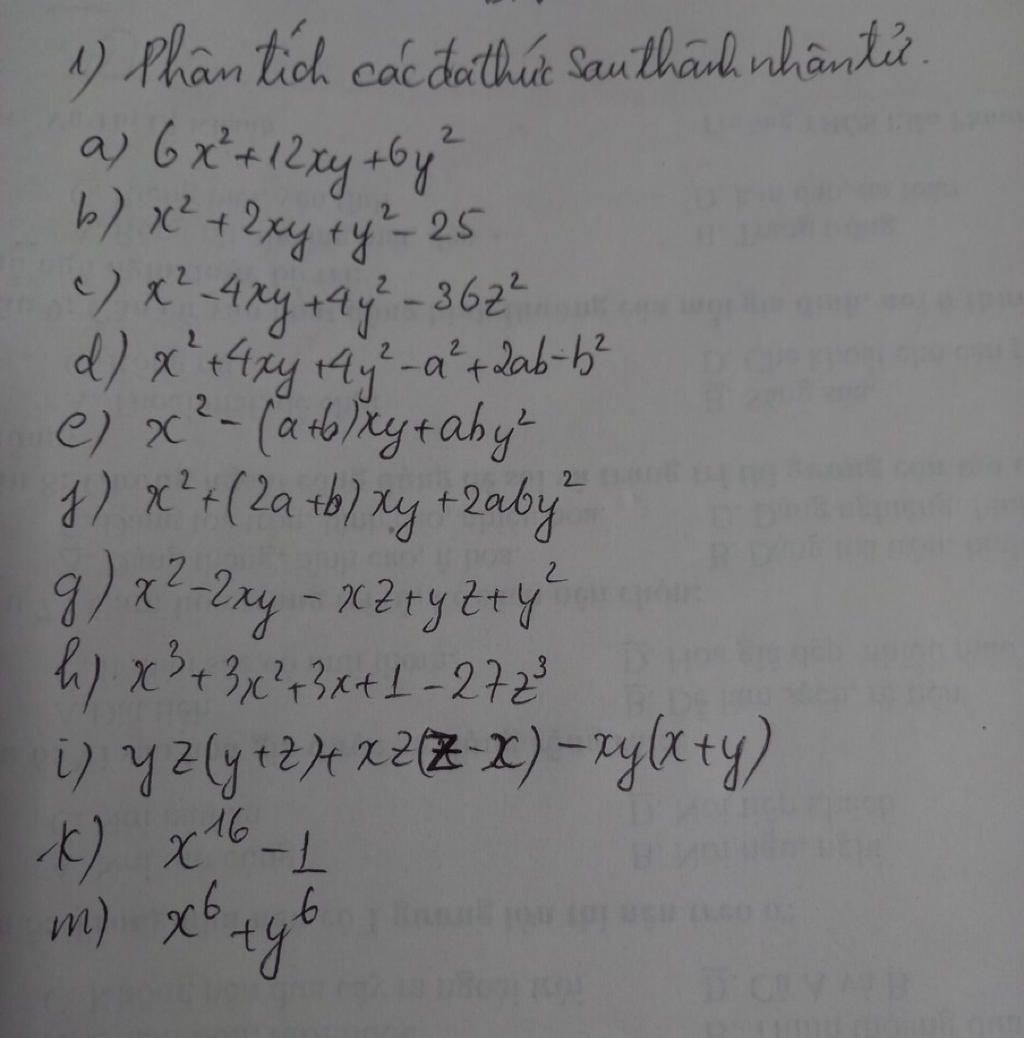 1) Phân tích các đa thức sau thành nhân tử.
a) 6x²+12xy+6y²
b) x²+2xy+y²-25
c) x²-4xy+4y²-36z²
d) x²+4xy+4y²-a²+2ab-b²
e) x²-(a+b)xy+aby²
f) x²+(2a+b)xy+2aby²
g) x²-2xy-xz+yz+y²
h) x³+3x²+3x+1-27z³
i) yz(y+z)+xz(z-x)-xy(x+y)
k) x¹⁶-1
m) x⁶+y⁶